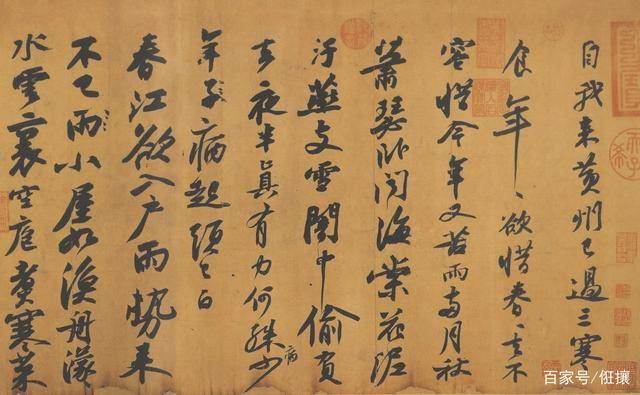 自我来黄州已過三寒
食年〻欲惜春〻去不
容惜今年又苦雨兩月秋
蕭瑟卧聞海棠花泥
汙燕支雪闇中偷負
去夜半真有力何殊病少
年子病起頭已白
春江欲入户雨勢来
不已雨小屋如漁舟濛〻
水雲裏空庖煮寒菜
百家号/俇攘